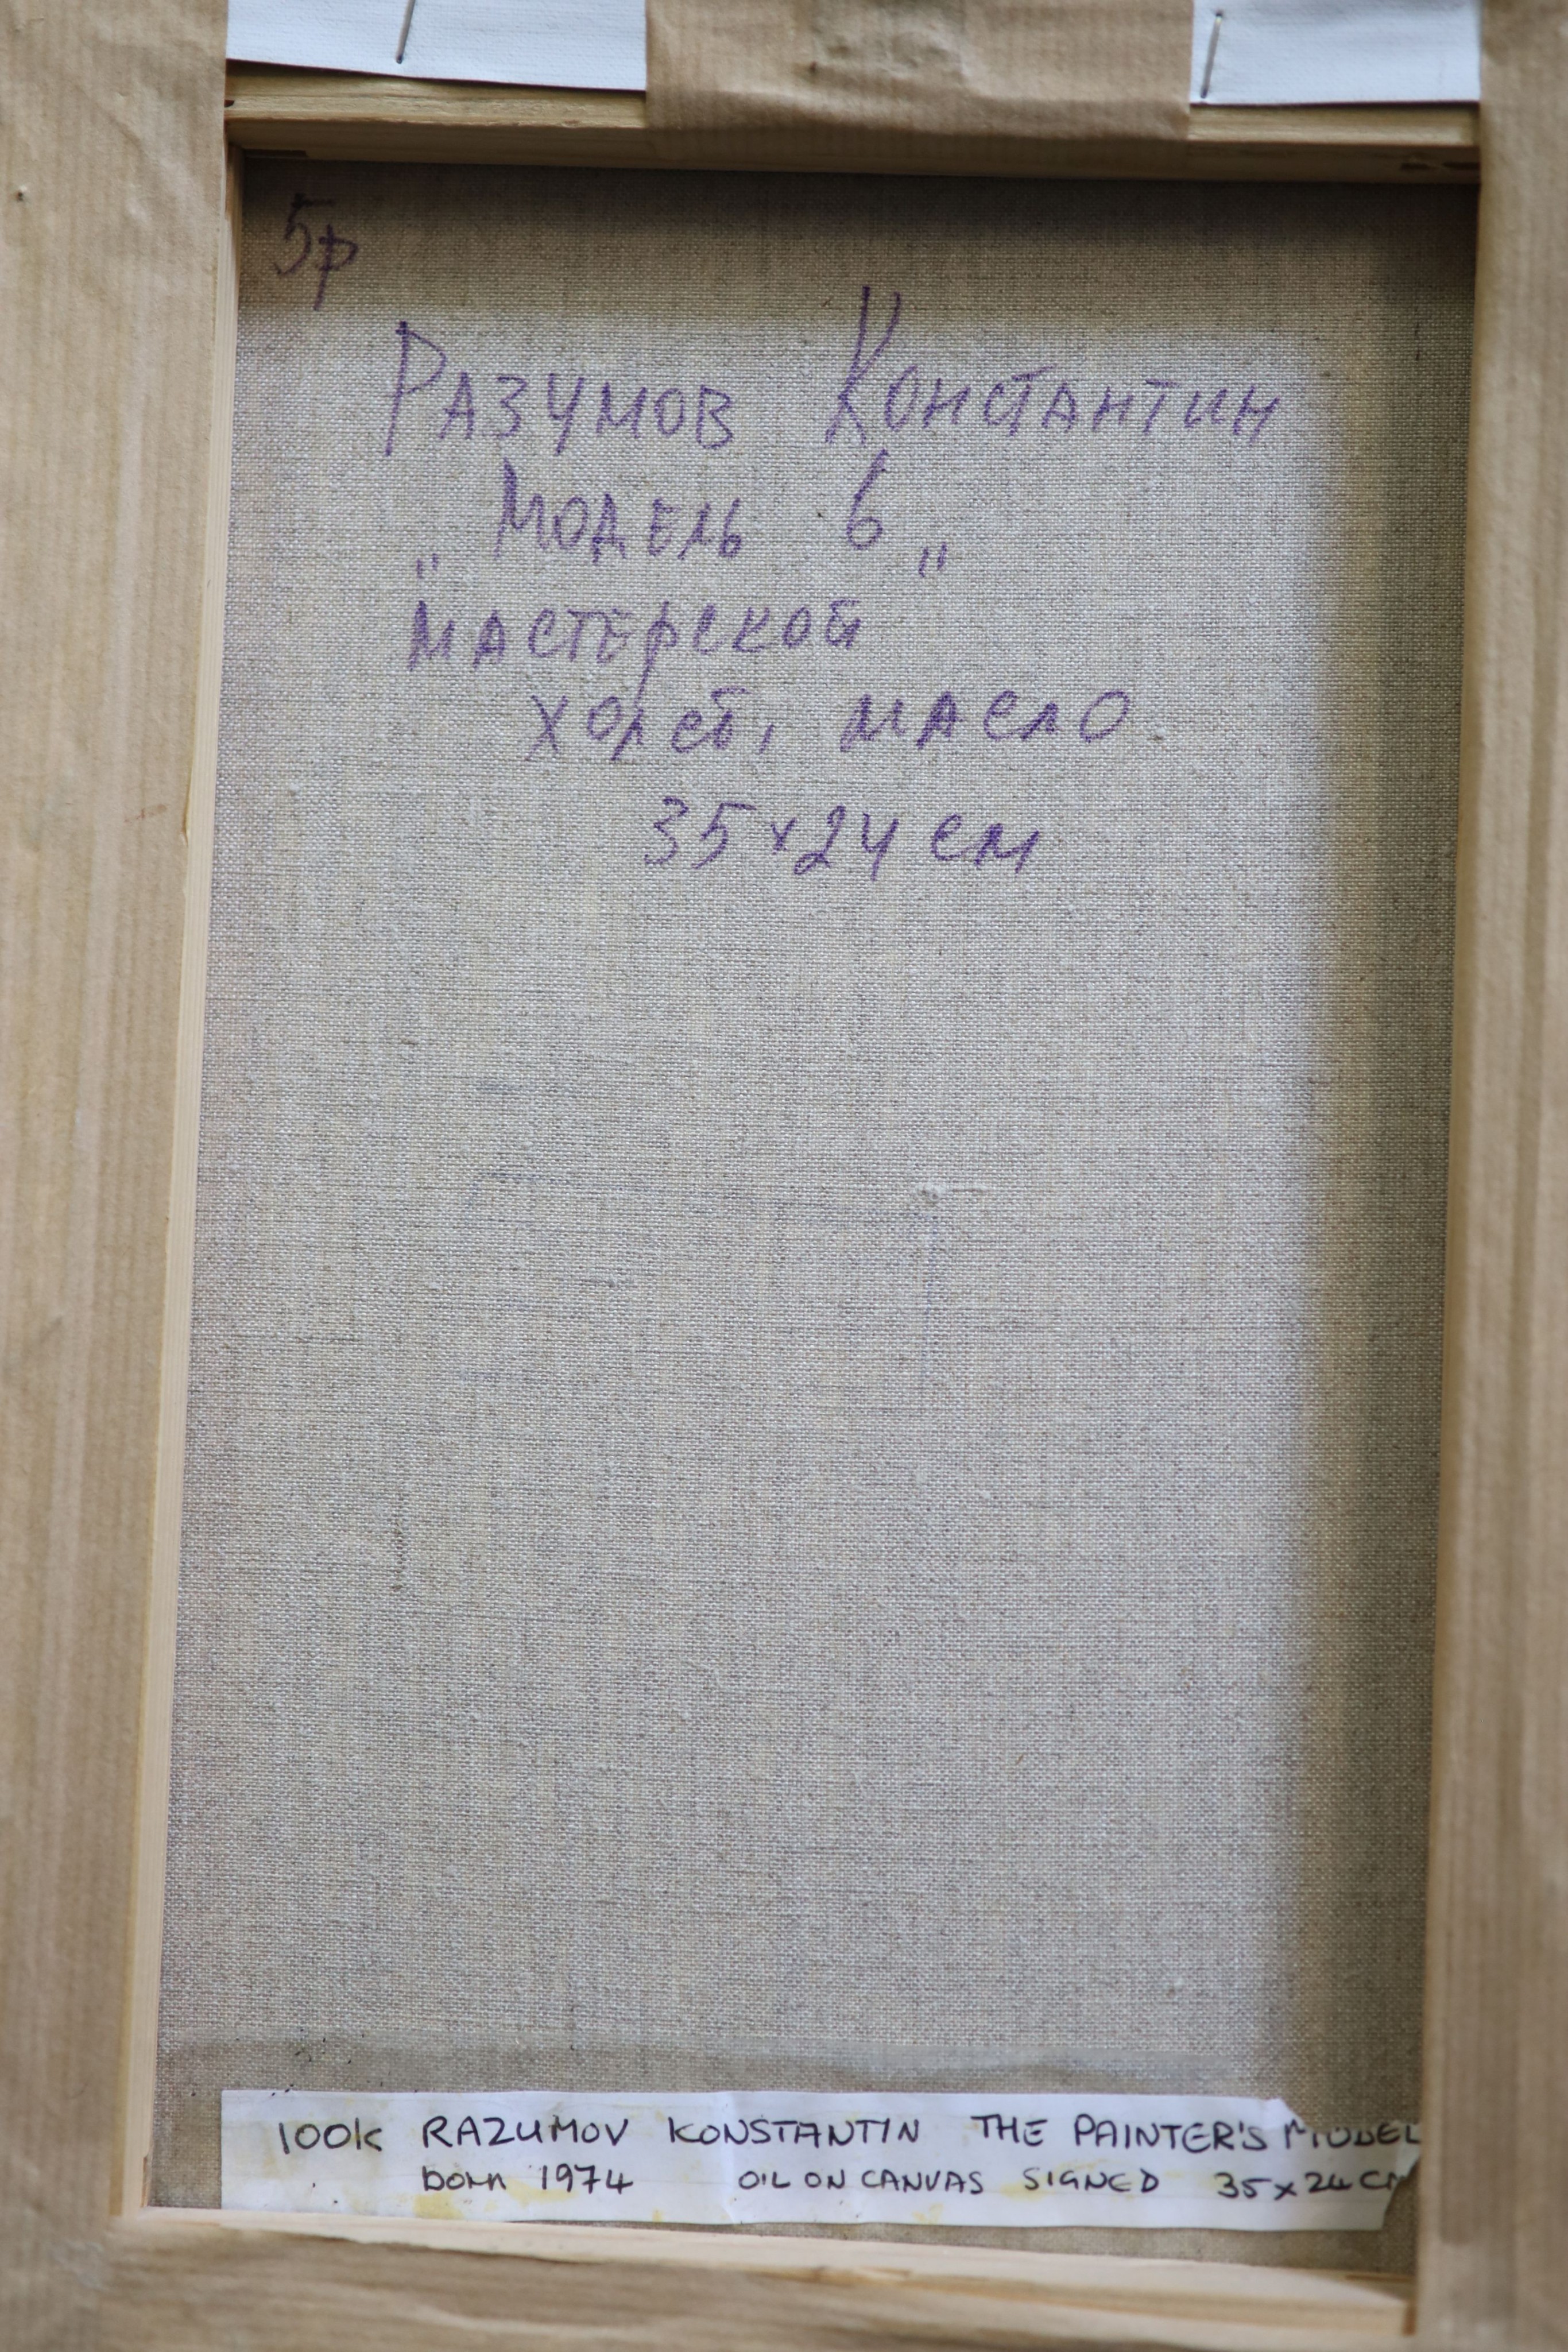 5р
Разумов Константин
„Модель в „
мастерской
холст, масло
35x24 см
100K RAZUMOV KONSTANTIN THE PAINTER'S MODEL
born 1974 OIL ON CANVAS SIGNED 35x24 CM